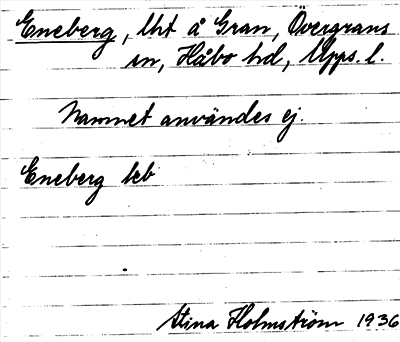 Eneberg, lht å Gran, Övergrans
sn, Håbo hd, Upps. l.
Namnet användes ej.
Eneberg kb
Stina Holmström 1936